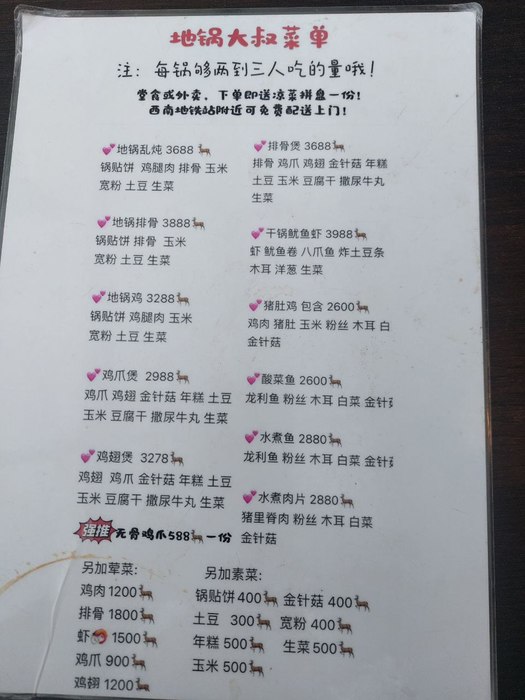 地锅大叔菜单
注: 每锅够两到三人吃的量哦!
堂食或外卖, 下单即送凉菜拼盘一份!
西南地铁站附近可免费配送上门!
地锅乱炖 3688
锅贴饼 鸡腿肉 排骨 玉米
宽粉 土豆 生菜
地锅排骨 3888
锅贴饼 排骨 玉米
宽粉 土豆 生菜
地锅鸡 3288
锅贴饼 鸡腿肉 玉米
宽粉 土豆 生菜
鸡爪煲 2988
鸡爪 鸡翅 金针菇 年糕 土豆
玉米 豆腐干 撒尿牛丸 生菜
鸡翅煲 3278
鸡翅 鸡爪 金针菇 年糕 土豆
玉米 豆腐干 撒尿牛丸 生菜
排骨煲 3688
排骨 鸡爪 鸡翅 金针菇 年糕
土豆 玉米 豆腐干 撒尿牛丸
生菜
干锅鱿鱼虾 3988
虾 鱿鱼卷 八爪鱼 炸土豆条
木耳 洋葱 生菜
猪肚鸡 包含 2600
鸡肉 猪肚 玉米 粉丝 木耳 白
金针菇
酸菜鱼 2600
龙利鱼 粉丝 木耳 白菜 金针
水煮鱼 2880
龙利鱼 粉丝 木耳 白菜 金针
水煮肉片 2880
猪里脊肉 粉丝 木耳 白菜
金针菇
强推 无骨鸡爪588 一份
另加荤菜:
鸡肉 1200
排骨 1800
虾 1500
鸡爪 900
鸡翅 1200
另加素菜:
锅贴饼 400 金针菇 400
土豆 300 宽粉 400
年糕 500 生菜 500
玉米 500